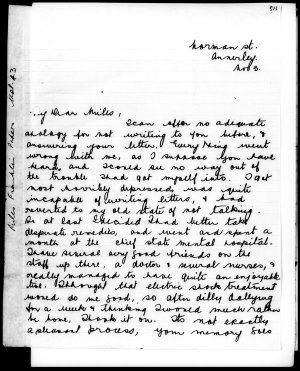 511
Norman St.
Annerley.
Nov 3.
My Dear Miles,
I can offer no adequate
apology for not writing to you before, &
answering your letter. Everything went
wrong with me, as I suppose you have
heard, and I could see no way out of
the trouble I had got myself into. I got
most horribly depressed, was quite
incapable of writing letters, & had
reverted to my old state of not talking.
So at last I decided I had better take
desperate remedies, and went and spent a
month at the chief state mental hospital.
I have several very good friends on the
staff up there, a doctor & several nurses, &
really managed to have quite an enjoyable
time. I thought that electric shock treatment
would do me good, so after dilly dallying
for a week & thinking I would much rather
be home, I took it on. Its not exactly
a pleasant process, your memory goes
Miles Franklin Papers